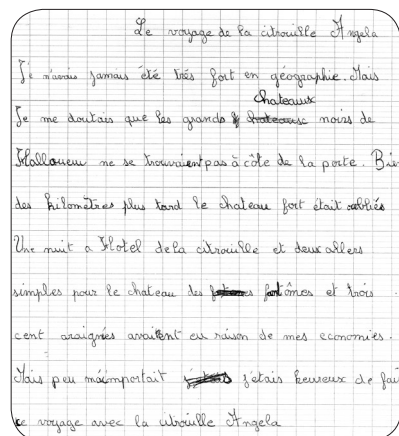 Le voyage de la citrouille Angela
Je n'avais jamais été très fort en géographie. Mais
chateaux
Je me doutais que les grands noirs de
Halloween ne se trouvaient pas à côte de la porte. Bie
des kilomètres plus tard le chateau fort était oubliés
Une nuit a Hotel de la citrouille et deux allers
simples pour le chateau des fantômes et trois
cent araignés avaient eu raison de mes economies.
Mais peu m'importait j'étais heureux de fai
ce voyage avec la citrouille Angela